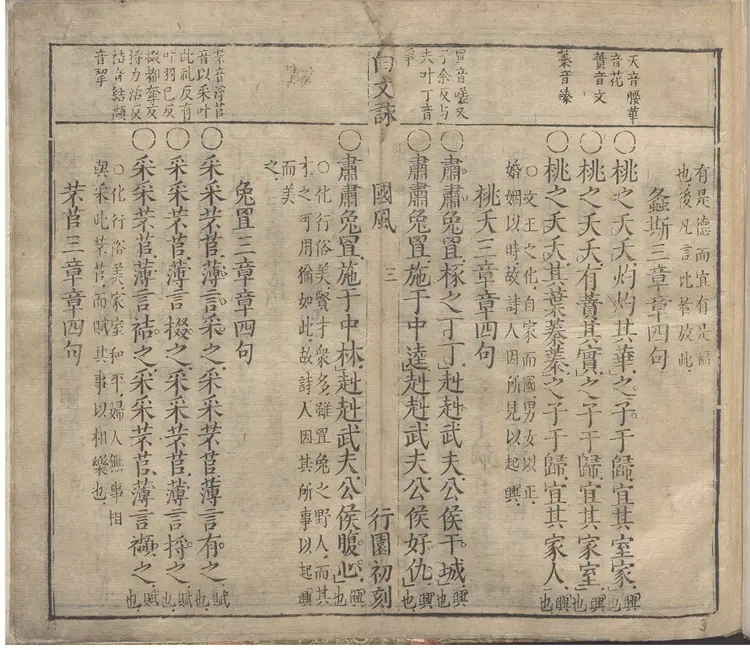 天音腰華
音花
蕡音文
蓁音臻
有是德而宜有是福
也後凡言此者放此
螽斯三章章四句
○桃之夭夭灼灼其華之子于歸宜其室家興也
○桃之夭夭有蕡其實之子于歸宜其家室興也
○桃之夭夭其葉蓁蓁之子于歸宜其家人興也
○文王之化自家而國男女以正
婚姻以時故詩人因所見以起興
桃夭三章章四句
罝音嗟又
子余反与
夫叶丁音
爭
○肅肅兔罝椓之丁丁赳赳武夫公侯干城興也
○肅肅兔罝施于中逵赳赳武夫公侯好仇興也
白文詩
國風
三
行園初刻
○肅肅兔罝施于中林赳赳武夫公侯腹心興也
○化行俗美賢才衆多雖罝兔之野人而其
才之可用猶如此故詩人因其所事以起興
而美
之
兔罝三章章四句
芣音浮苢
音以采叶
此礼反有
叶羽已反
掇都奪反
捋力活反
袺音結襭
音挈
○采采芣苢薄言采之采采芣苢薄言有之賦也
○采采芣苢薄言掇之采采芣苢薄言捋之賦也
○采采芣苢薄言袺之采采芣苢薄言襭之賦也
○化行俗美家室和平婦人無事相
與采此芣苢而賦其事以相樂也
芣苢三章章四句
3